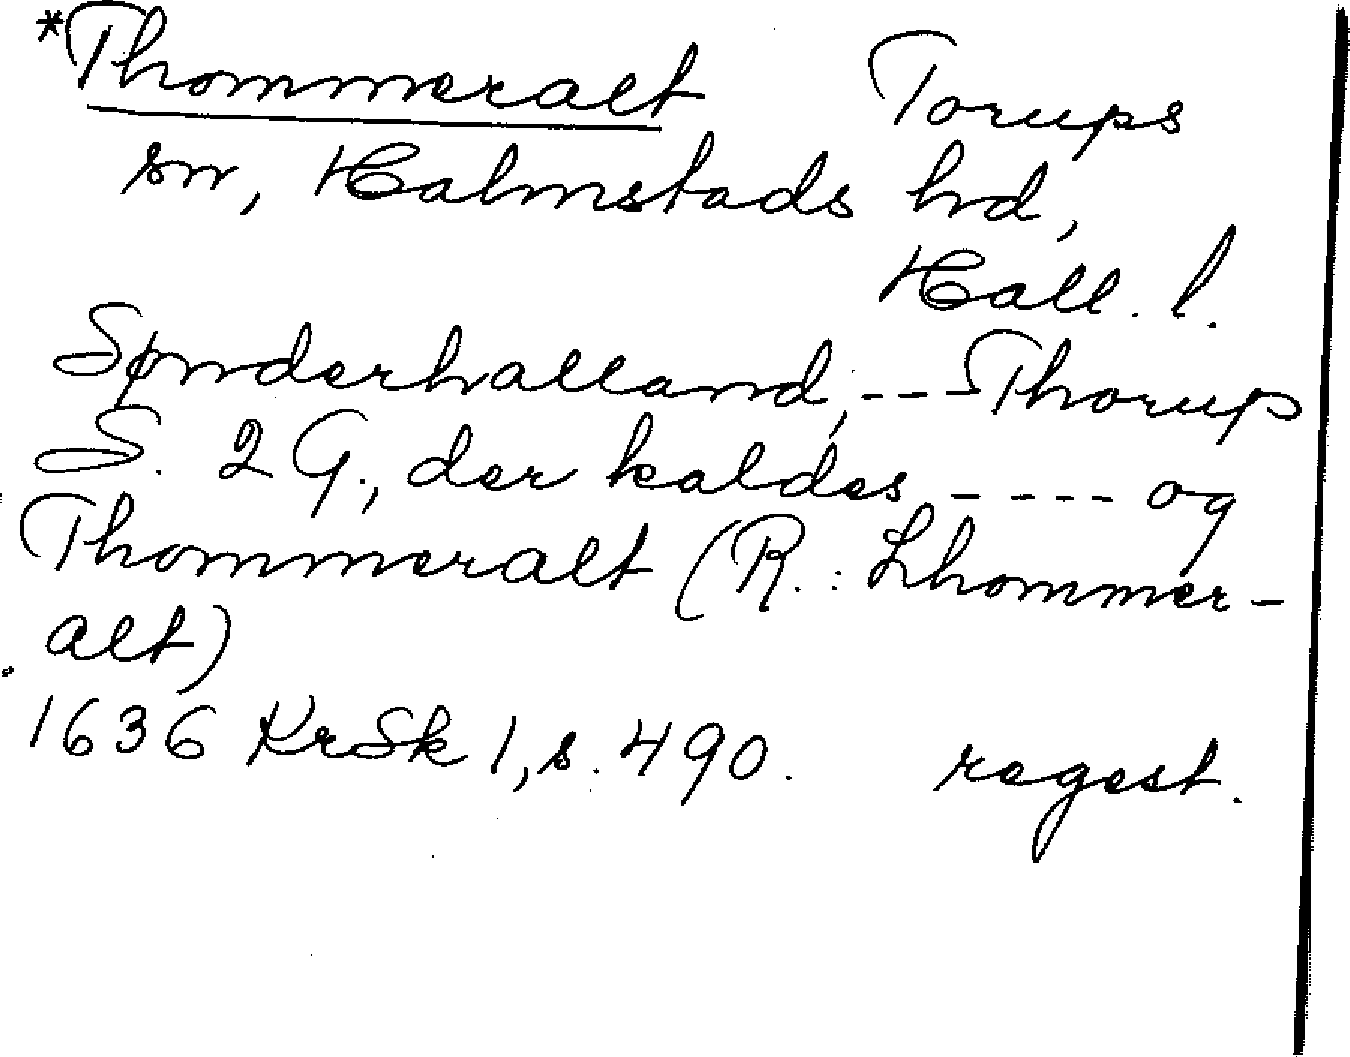 *Thommeralt Torups
sn, Halmstads hd,
Hall. l.
Sønderhalland, --- Thorup
S. 2 G., der kaldes ---- og
Thommeralt (R.: Lhommer-
alt)
1636 KrSk 1, s. 490. regest.